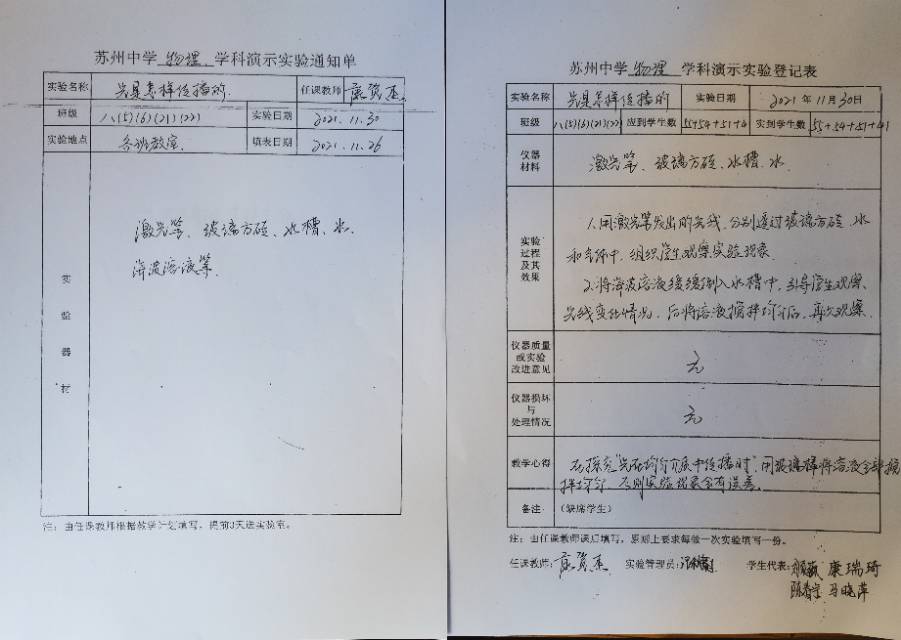 苏州中学 物理 学科演示实验通知单
实验名称 光是怎样传播的 任课教师
班级 八(5)(6)(21)(22) 实验日期 2021.11.30
实验地点 各班教室 填表日期 2021.11.26
实验器材
激光笔、玻璃方砖、水槽、水、
海波溶液等
注：由任课教师根据教学计划填写，提前3天送实验室。
苏州中学 物理 学科演示实验登记表
实验名称 光是怎样传播的 实验日期 2021年11月30日
班级 八(5)(6)(21)(22) 应到学生数 实到学生数
仪器材料
激光笔、玻璃方砖、水槽、水.
实验过程及其效果
1.用激光笔发出的光线,分别透过玻璃方砖、水
和空气中,组织学生观察实验现象.
2.将海波溶液缓缓倒入水槽中,引导学生观察、
光线变化情况,后将溶液搅拌均匀后,再次观察.
仪器质量或实验改进意见 无
仪器损坏与处理情况 无
教学心得
在探究“光在均匀介质中传播时”,用玻璃棒将溶液全部搅
拌均匀,否则实验现象会有误差.
备注: (缺席学生)
注：由任课教师课后填写，原则上要求每做一次实验填写一份。
任课教师: 实验管理员: 学生代表: 康瑞琦
马晓萍